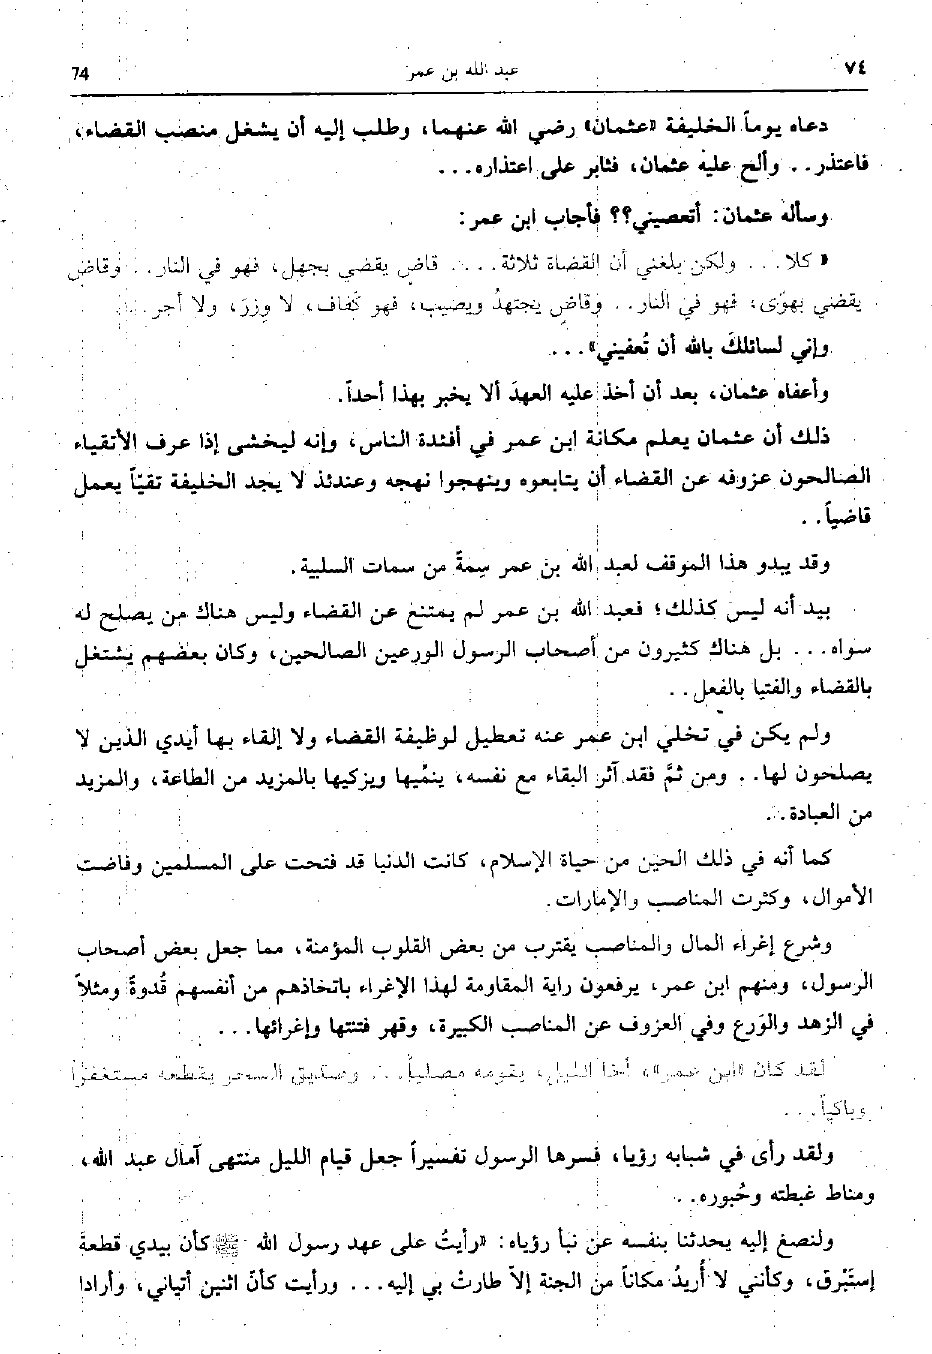 ٧٤ عبد الله بن عمر 74
دعاه يوماً الخليفة «عثمان» رضي الله عنهما، وطلب إليه أن يشغل منصب القضاء،
فاعتذر.. وألح عليه عثمان، فثابر على اعتذاره...
وسأله عثمان: أتعصيني؟؟ فأجاب ابن عمر:
« كلا... ولكن بلغني أن القضاة ثلاثة.... قاضٍ يقضي بجهل، فهو في النار.. وقاضٍ
يقضي بهوًى، فهو في النار.. وقاضٍ يجتهدُ ويصيب، فهو كَفاف، لا وِزرَ، ولا أجر..
وإني لسائلكَ بالله أن تُعفيني»...
وأعفاه عثمان، بعد أن أخذ عليه العهدَ ألا يخبر بهذا أحداً.
ذلك أن عثمان يعلم مكانة ابن عمر في أفئدة الناس، وإنه ليخشى إذا عرف الأتقياء
الصالحون عزوفه عن القضاء أن يتابعوه وينهجوا نهجه وعندئذ لا يجد الخليفة تقيّاً يعمل
قاضياً..
وقد يبدو هذا الموقف لعبد الله بن عمر سِمةً من سمات السلبية.
بيد أنه ليس كذلك؛ فعبد الله بن عمر لم يمتنع عن القضاء وليس هناك من يصلح له
سواه... بل هناك كثيرون من أصحاب الرسول الورعين الصالحين، وكان بعضهم يشتغل
بالقضاء والفتيا بالفعل..
ولم يكن في تخلي ابن عمر عنه تعطيل لوظيفة القضاء ولا إلقاء بها أيدي الذين لا
يصلحون لها.. ومن ثمَّ فقد آثر البقاء مع نفسه، ينمِّيها ويزكيها بالمزيد من الطاعة، والمزيد
من العبادة..
كما أنه في ذلك الحين من حياة الإسلام، كانت الدنيا قد فتحت على المسلمين وفاضت
الأموال، وكثرت المناصب والإمارات.
وشرع إغراء المال والمناصب يقترب من بعض القلوب المؤمنة، مما جعل بعض أصحاب
الرسول، ومنهم ابن عمر، يرفعون راية المقاومة لهذا الإغراء باتخاذهم من أنفسهم قُدوةً ومثلاً
في الزهد والوَرع وفي العزوف عن المناصب الكبيرة، وقهر فتنتها وإغرائها...
لقد كان «ابن عمر»، أخا الليل، يقومه مصلياً... وصديق السحر يقطعه مستغفراً
وباكياً...
ولقد رأى في شبابه رؤيا، فسرها الرسول تفسيراً جعل قيام الليل منتهى آمال عبد الله،
ومناط غبطته وحُبوره..
ولنصغ إليه يحدثنا بنفسه عن نبأ رؤياه: «رأيتُ على عهد رسول الله ﷺ كأن بيدي قطعة
إستَبْرق، وكأنني لا أُريدُ مكاناً من الجنة إلاّ طارتْ بي إليه... ورأيت كأنّ اثنين أتياني، وأرادا